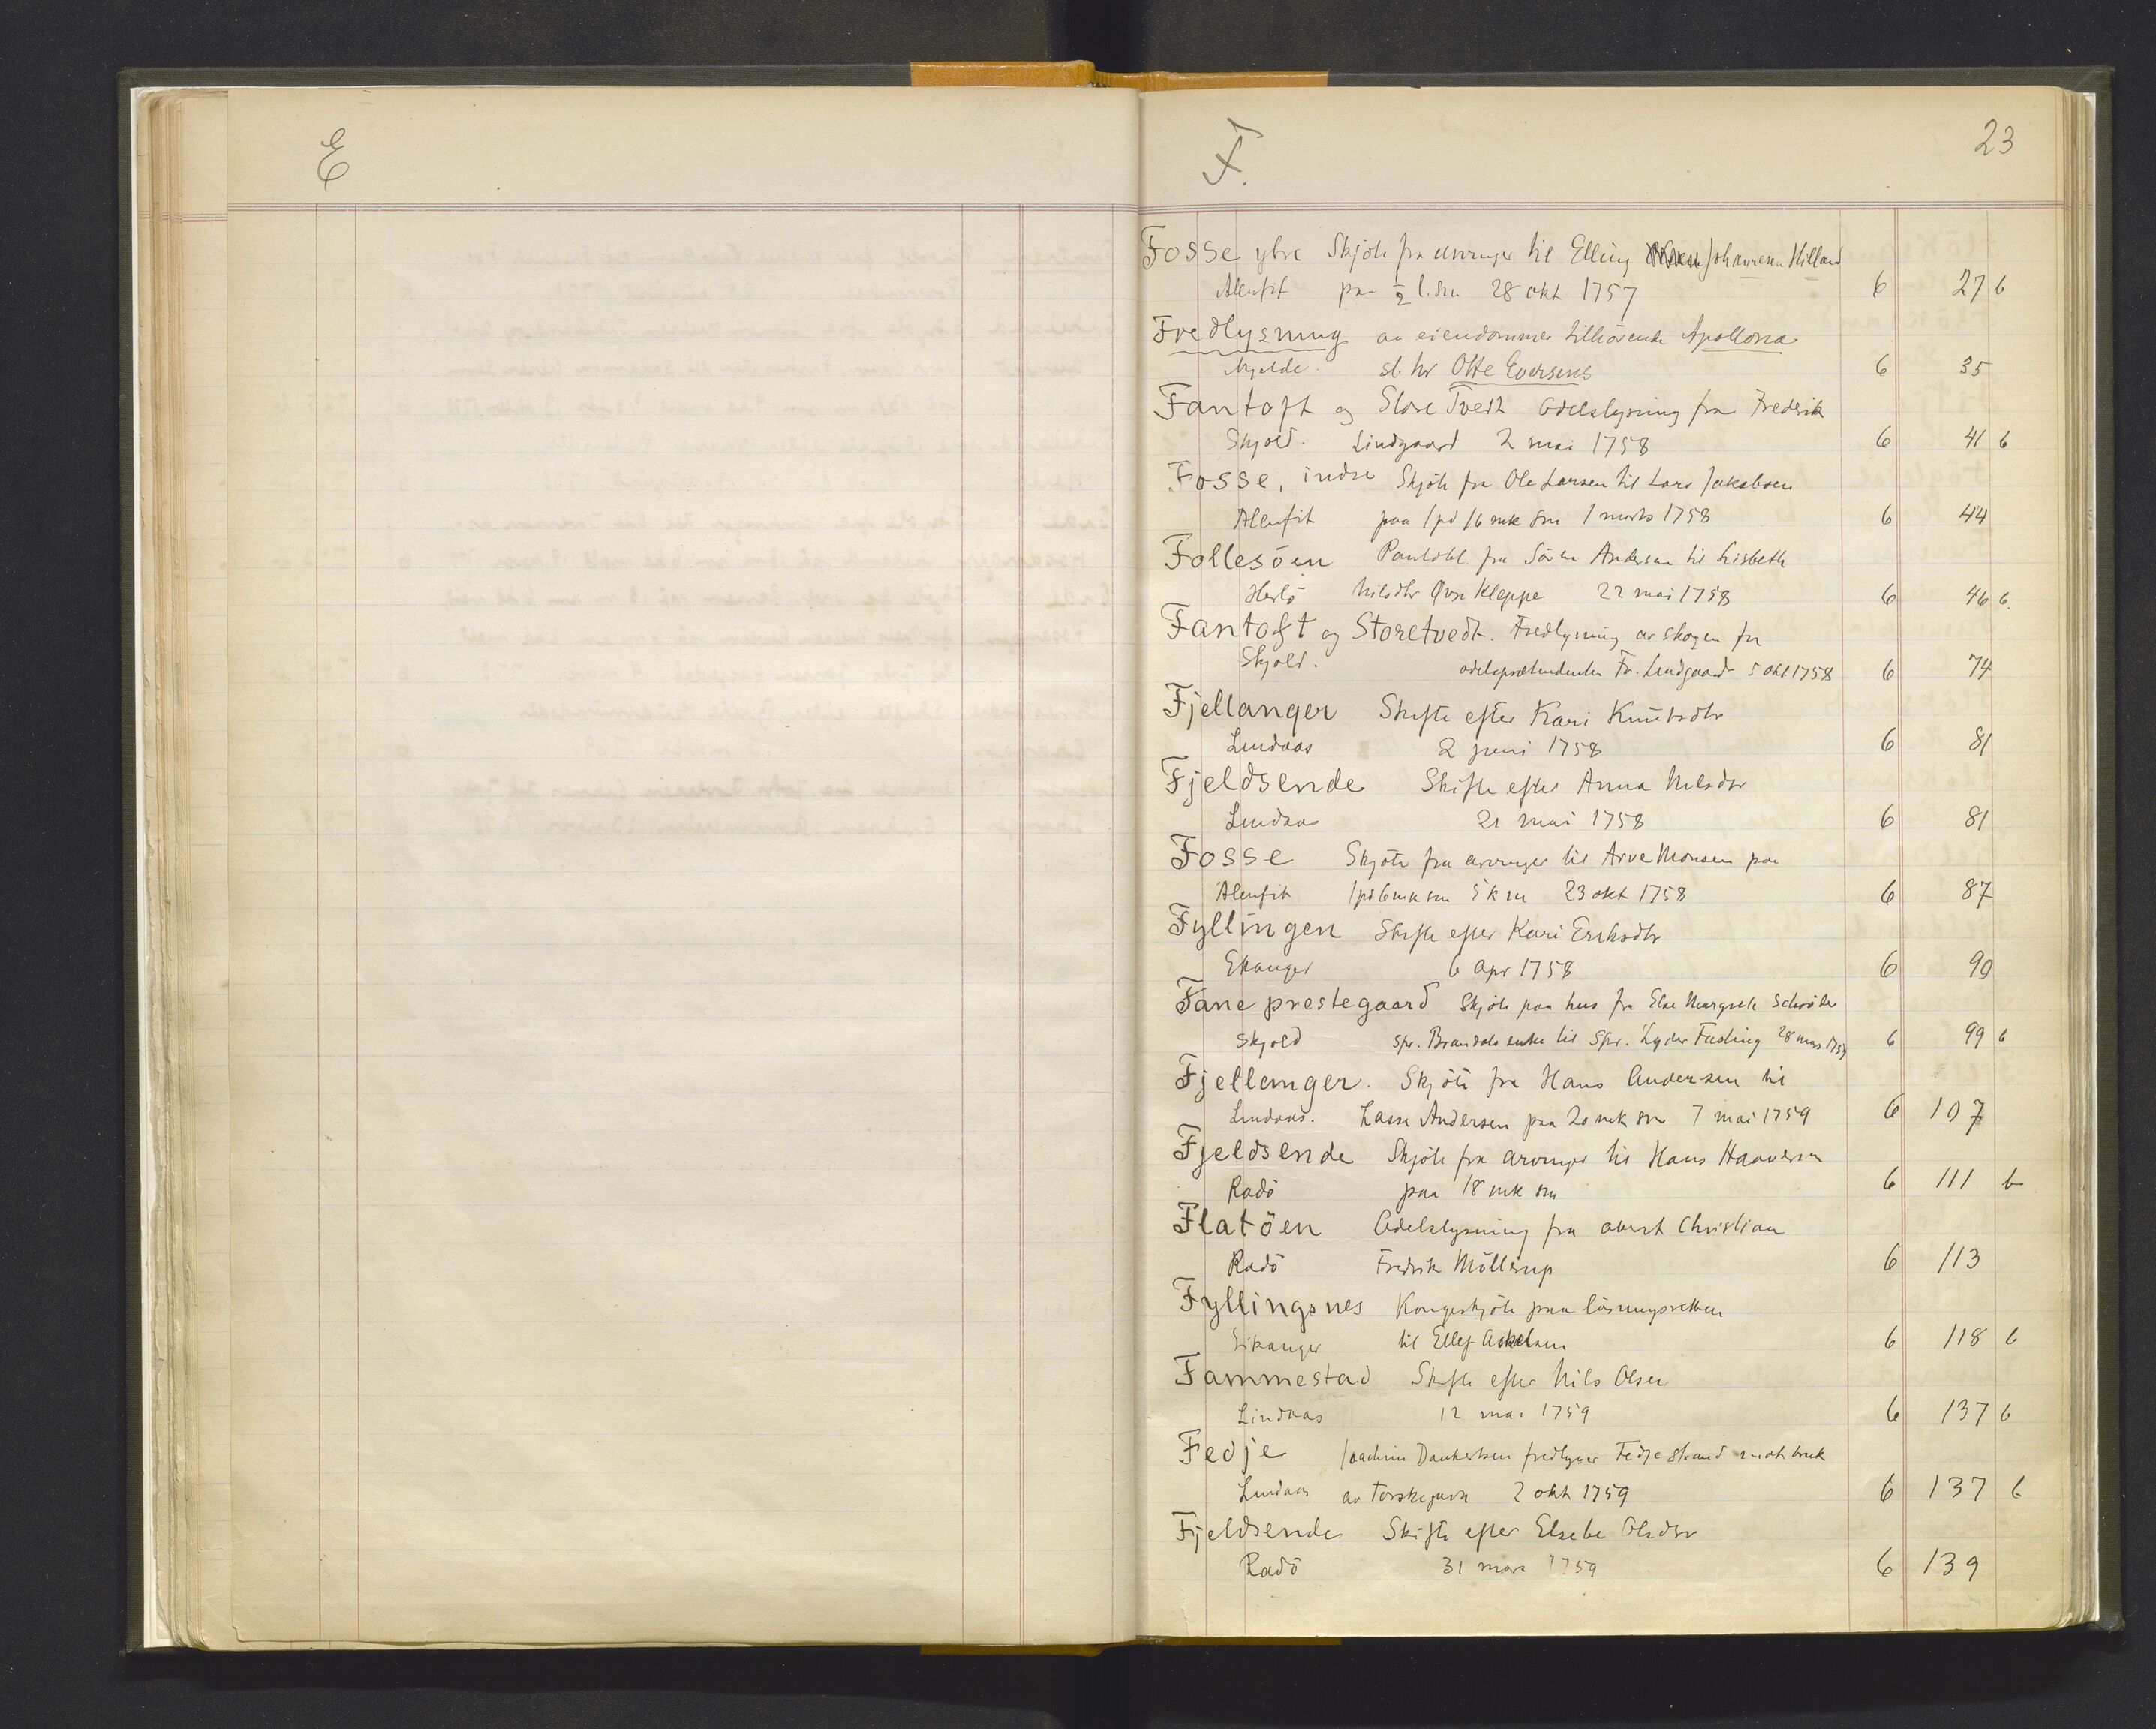 E
F.
23
Fosse ytre Skjöte fra arvinger til Elling Johannesen Hilland
Alenfit paa ½ l. sm 28 okt 1757 6 27 b
Fredlysning av eiendommer tilhörende Apollona
Mjelde. sl. hr Otte Eversens 6 35
Fantoft og Store Tvedt Odelslysning fra Fredrik
Skjold. Lindgaard 2 mai 1758 6 41 b
Fosse, indre Skjöte fra Ole Larsen til Lars Jakobsen
Alenfit paa 1 pd 16 mk sm 1 marts 1758 6 44
Follesöen Pantobl. fra Sören Andersen til Lisbeth
Herlö Nilsdtr Övre Kleppe 22 mai 1758 6 46 b.
Fantoft og Storetvedt. Fredlysning av skogen fra
Skjold. odelsprætendenten Fr. Lindgaard 5 okt 1758 6 74
Fjellanger Skifte efter Kari Knutsdtr
Lindaas 2 juni 1758 6 81
Fjeldsende Skifte efter Anna Nelsdtr
Lindaas 21 mai 1758 6 81
Fosse Skjöte fra arvinger til Arve Monsen paa
Alenfit 1 pd 6 mk sm 23 okt 1758 6 87
Fyllingen Skifte efter Kari Eriksdtr
Ekanger 6 apr 1758 6 90
Fane prestegaard Skjöte paa hus fra Else Margrete Schröder
Skjold spr. Brandals enke til Spr. Lyder Fasting 28 mars 1759 6 99 b
Fjellanger. Skjöte fra Hans Andersen til
Lindaas. Lasse Andersen paa 20 mk sm 7 mai 1759 6 107
Fjeldsende Skjöte fra arvinger til Hans Haaversen
Radö paa 18 mk sm 6 111 b
Flatöen Odelslysning fra oberst Christian
Radö Fredrik Möllerup 6 113
Fyllingsnes Kongeskjöte paa lösningsretten
Eikanger til Ellef Askelsen 6 118 b
Fammestad Skifte efter Nils Olsen
Lindaas 12 mai 1759 6 137 b
Fedje Joachim Dankertsen fredlyser Fedje strand mot bruk
Lindaas av torskegarn 2 okt 1759 6 137 b
Fjeldsende Skifte efter Elsebe Olsdtr
Radö 31 mars 1759 6 139